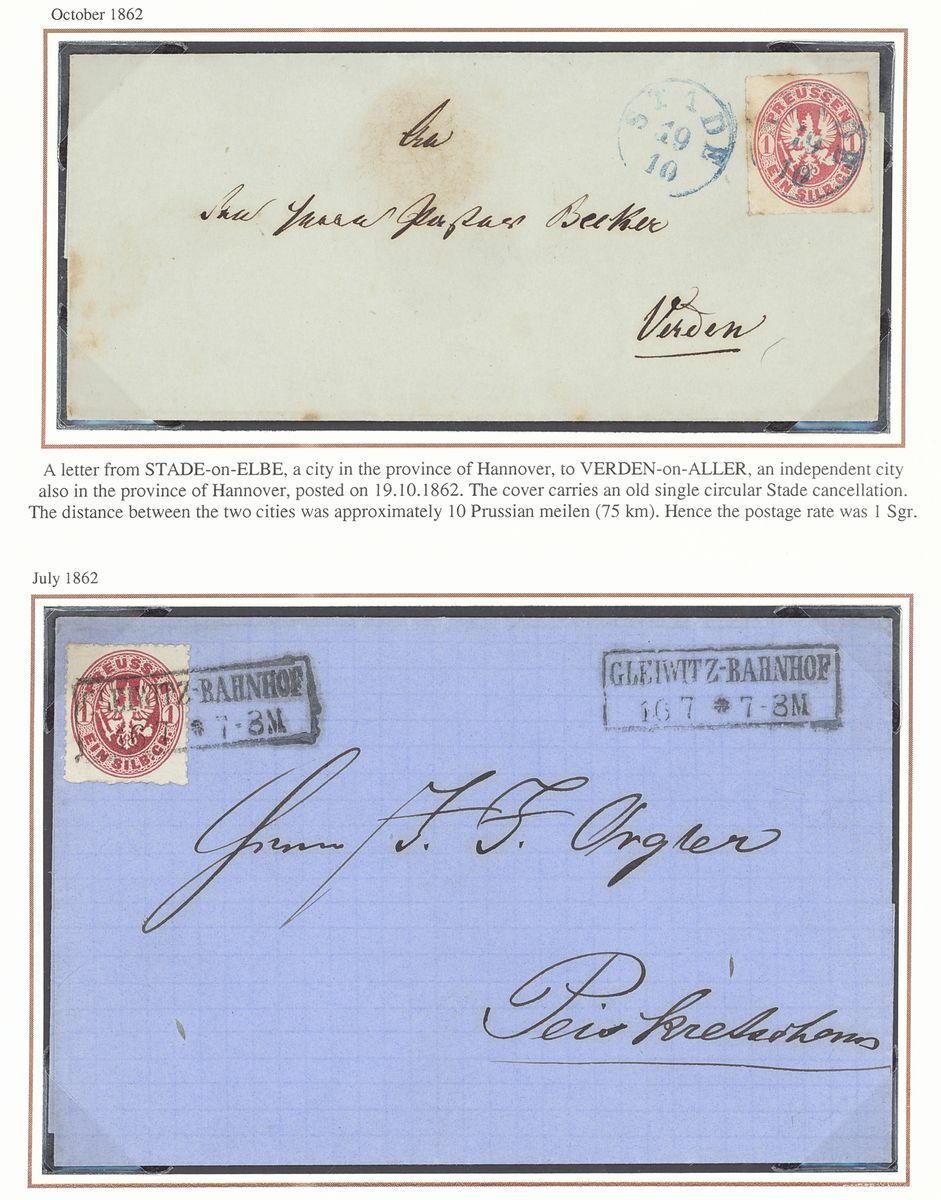 October 1862
STADE
19
10
PREUSSEN
1 1
EIN SILB.GR.
Herrn Pastor Becker
Verden
A letter from STADE-on-ELBE, a city in the province of Hannover, to VERDEN-on-ALLER, an independent city
also in the province of Hannover, posted on 19.10.1862. The cover carries an old single circular Stade cancellation.
The distance between the two cities was approximately 10 Prussian meilen (75 km). Hence the postage rate was 1 Sgr.
July 1862
PREUSSEN
1 1
EIN SILB.GR.
GLEIWITZ-BAHNHOF
* 7-8M
GLEIWITZ-BAHNHOF
16 7 * 7-8M
Herrn J. J. Orgler
Peiskretscham